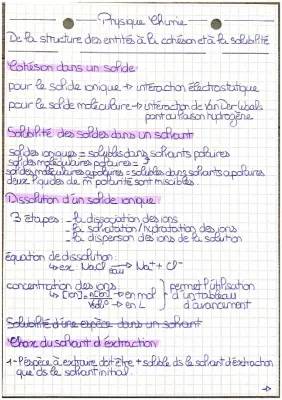 Physique Chimie
De la structure des entités à la cohésion et à la solubilité
Cohésion dans un solide
pour le solide ionique → interaction électrostatique
pour le solide moléculaire → interaction de Van Der Waals
pont ou liaison hydrogène
Solubilité des solides dans un solvant
solides ioniques = solubles dans solvants polaires
solides moléculaires polaires =
solides moléculaires apolaires = solubles dans solvants apolaires
deux liquides de m̂ polarité sont miscibles.
Dissolution d'un solide ionique
3 étapes : - la dissociation des ions
- la solvatation/hydratation des ions
- la dispersion des ions de la solution
Équation de dissolution :
↳ ex: NaCl → eau Na⁺ + Cl⁻
concentration des ions } permet l'utilisation
↳ [ion] = n(ion) → en mol } d'un tableau
Vsol° → en L } d'avancement
Solubilité d'une espèce dans un solvant
Choix du solvant d'extraction
1- l'espèce à extraire doit être + soluble ds le solvant d'extraction
que ds le solvant initial.
→